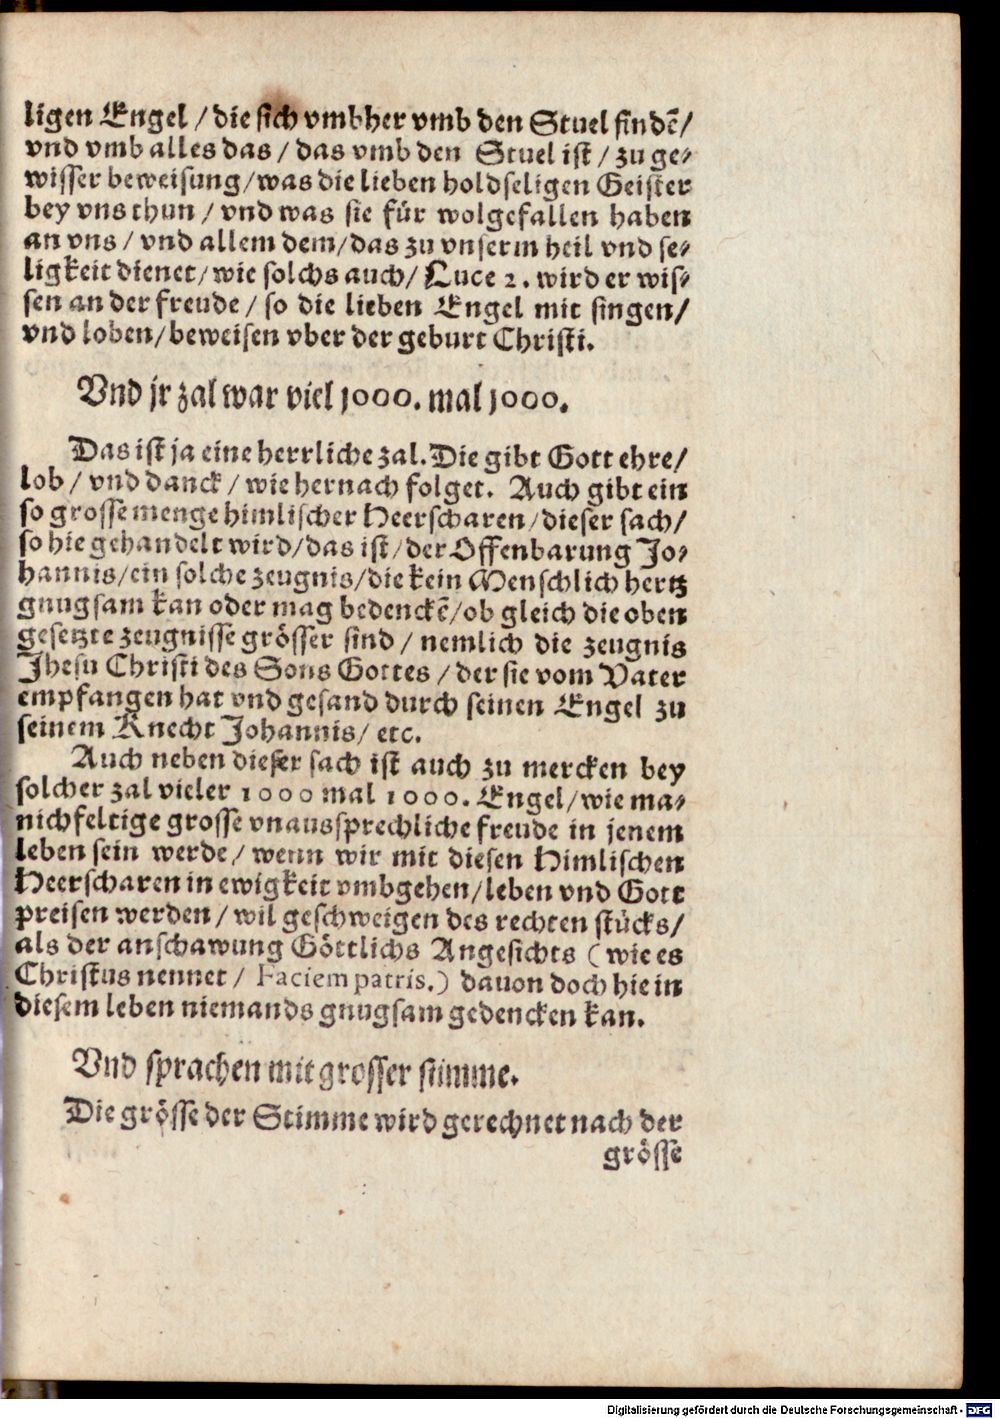 ligen Engel / die sich vmbher vmb den Stuel findẽ/
vnd vmb alles das / das vmb den Stuel ist / zu ge-
wisser beweisung / was die lieben holdseligen Geister
bey vns thun / vnd was sie für wolgefallen haben
an vns / vnd allem dem / das zu vnserm heil vnd se-
ligkeit dienet / wie solchs auch / Luce 2. wird er wis-
sen an der freude / so die lieben Engel mit singen /
vnd loben / beweisen vber der geburt Christi.
Vnd jr zal war viel 1000. mal 1000.
Das ist ja eine herrliche zal. Die gibt Gott ehre /
lob / vnd danck / wie hernach folget. Auch gibt ein
so grosse menge himlischer Heerscharen / dieser sach /
so hie gehandelt wird / das ist / der Offenbarung Jo-
hannis / ein solche zeugnis / die kein Menschlich hertz
gnugsam kan oder mag bedenckẽ / ob gleich die oben
gesetzte zeugnisse grösser sind / nemlich die zeugnis
Jhesu Christi des Sons Gottes / der sie vom Vater
empfangen hat vnd gesand durch seinen Engel zu
seinem Knecht Johannis / etc.
Auch neben dieser sach ist auch zu mercken bey
solcher zal vieler 1000 mal 1000. Engel / wie ma-
nichfeltige grosse vnaussprechliche freude in jenem
leben sein werde / wenn wir mit diesen Himlischen
Heerscharen in ewigkeit vmbgehen / leben vnd Gott
preisen werden / wil geschweigen des rechten stücks /
als der anschawung Göttlichs Angesichts ( wie es
Christus nennet / Faciem patris.) dauon doch hie in
diesem leben niemands gnugsam gedencken kan.
Vnd sprachen mit grosser stimme.
Die grösse der Stimme wird gerechnet nach der
grösse
Digitalisierung gefördert durch die Deutsche Forschungsgemeinschaft - DFG